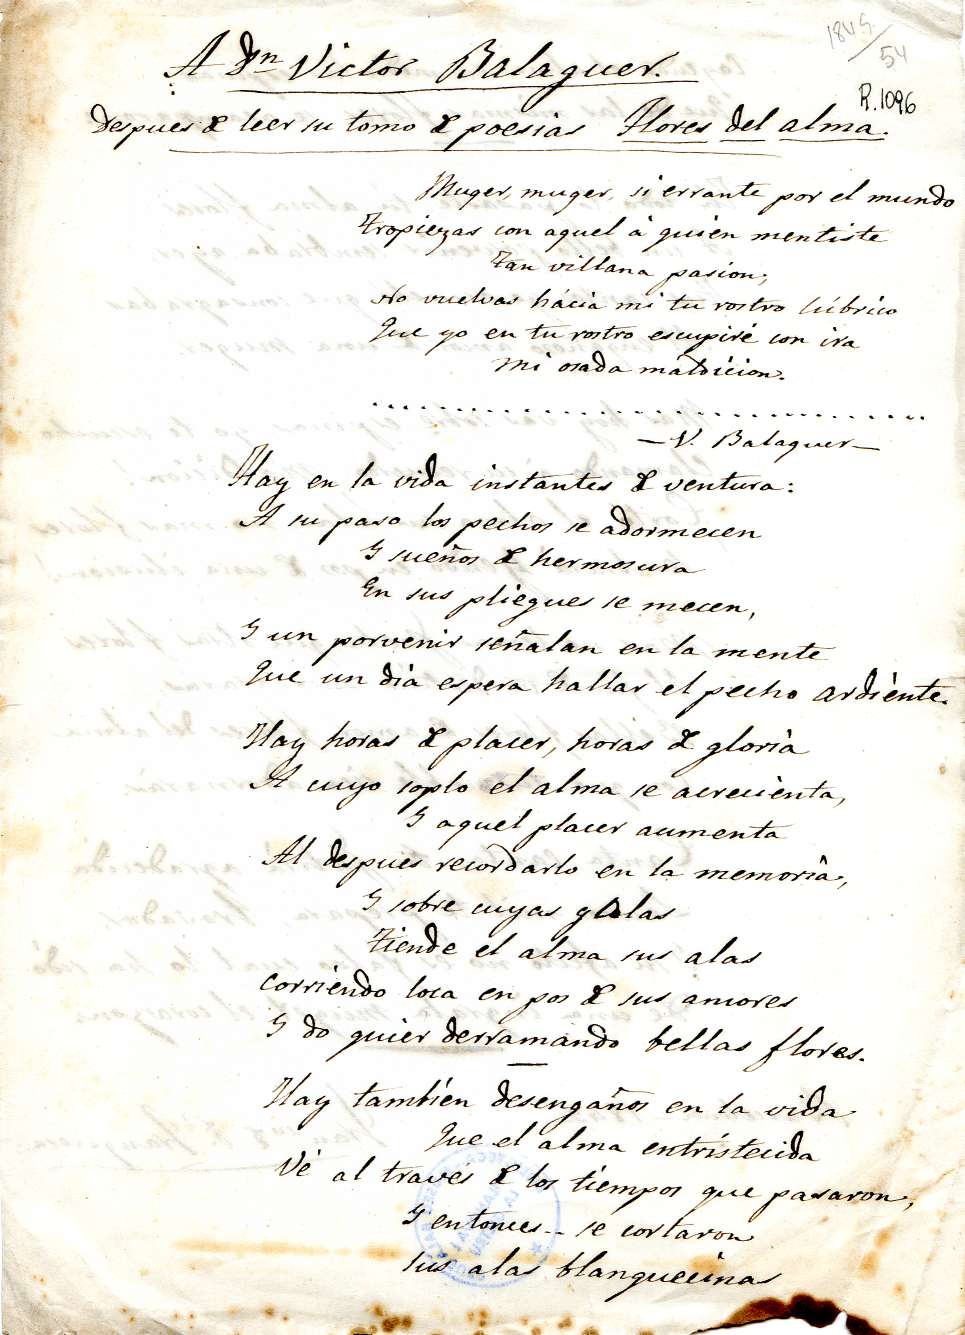 1849/54
R.1096
A Dn Victor Balaguer.
Despues de leer su tomo de poesias Flores del alma.
Muger, muger, si errante por el mundo
Tropiezas con aquel á quien mentiste
Tan villana pasion;
No vuelvas hácia mi tu rostro lúbrico
Que yo en tu rostro escupiré con ira
Mi osada maldicion.
..........................................
— V. Balaguer —
Hay en la vida instantes de ventura:
A su paso los pechos se adormecen
Y sueños de hermosura
En sus pliegues se mecen,
Y un porvenir señalan en la mente
Que un dia espera hallar el pecho ardiente.
Hay horas de placer, horas de gloria
A cuyo soplo el alma se acrecienta,
Y aquel placer aumenta
Al despues recordarlo en la memoria,
Y sobre cuyas galas
Tiende el alma sus alas
Corriendo loca en pos de sus amores
Y do quier derramando bellas flores.
Hay tambien desengaños en la vida
Que el alma entristecida
Vé al través de los tiempos que pasaron,
Y entonces... se cortaron
Sus alas blanquecinas